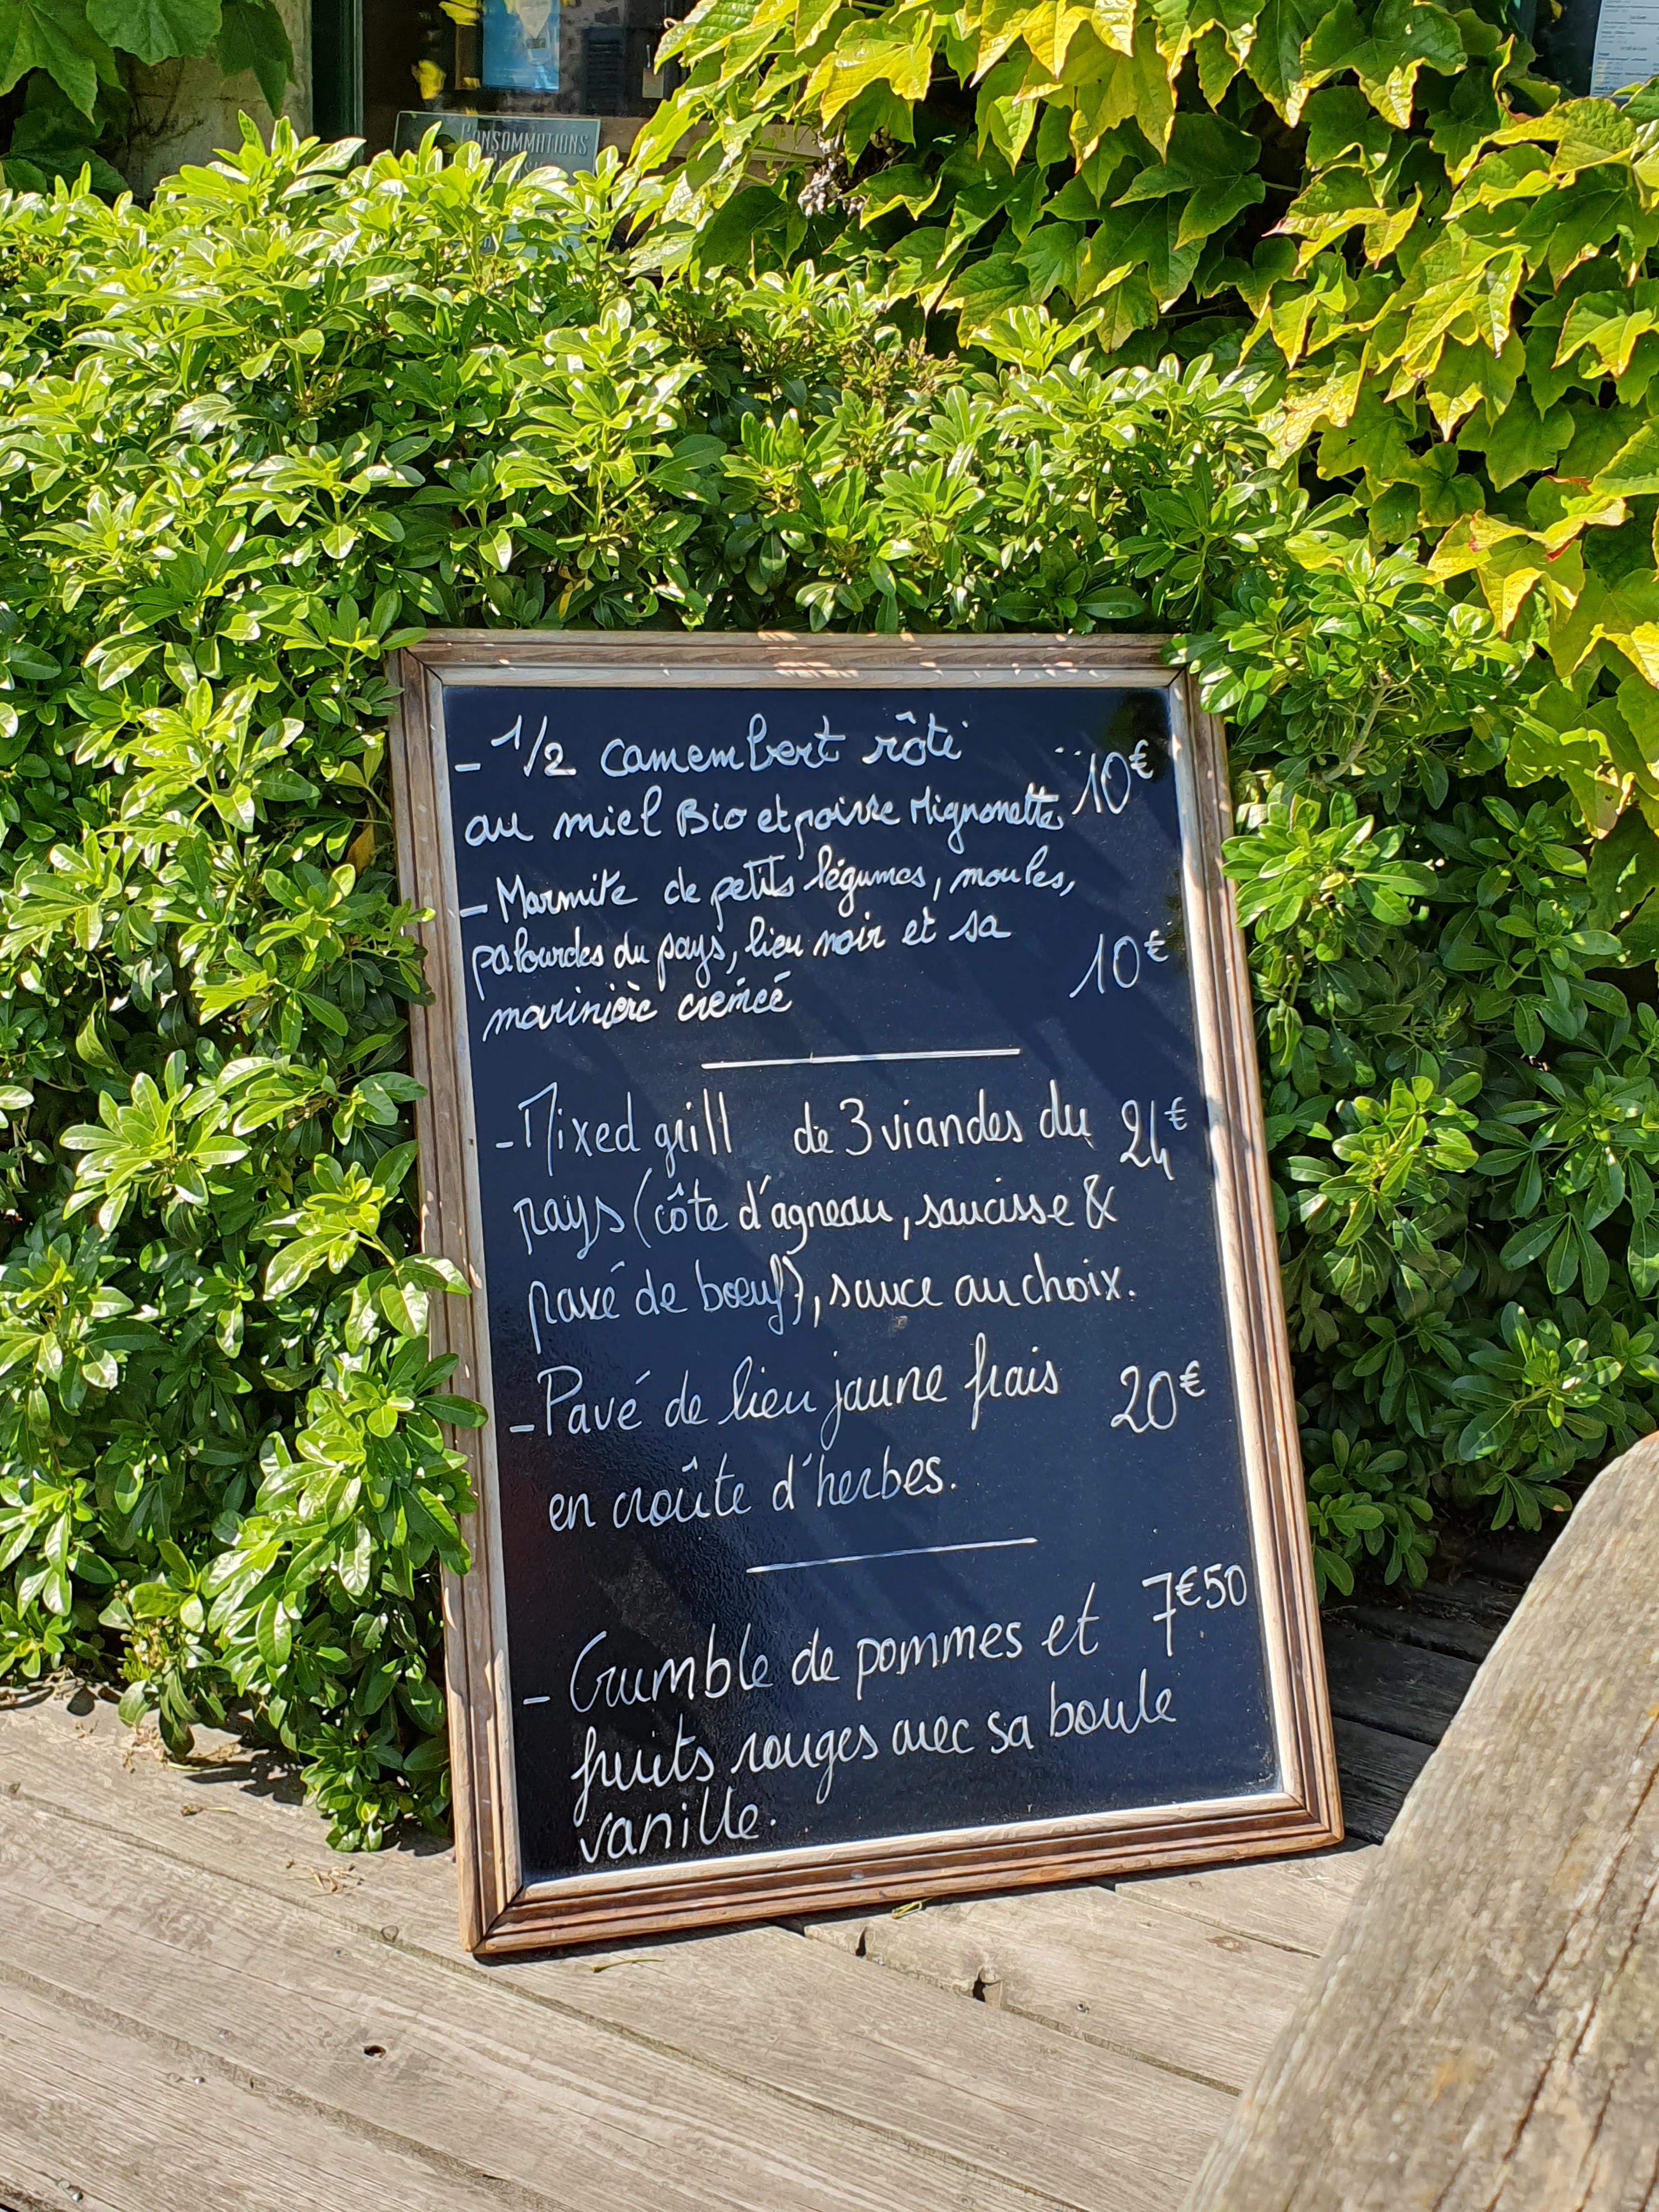 CONSOMMATIONS
- 1/2 camembert rôti 10€
au miel Bio et poivre Mignonette
- Marmite de petits légumes, moules,
palourdes du pays, lieu noir et sa 10€
marinière crémeé
- Mixed grill de 3 viandes du 24€
pays (côte d'agneau, saucisse &
pavé de bœuf), sauce au choix.
- Pavé de lieu jaune frais 20€
en croûte d'herbes.
- Crumble de pommes et 7€50
fruits rouges avec sa boule
vanille.